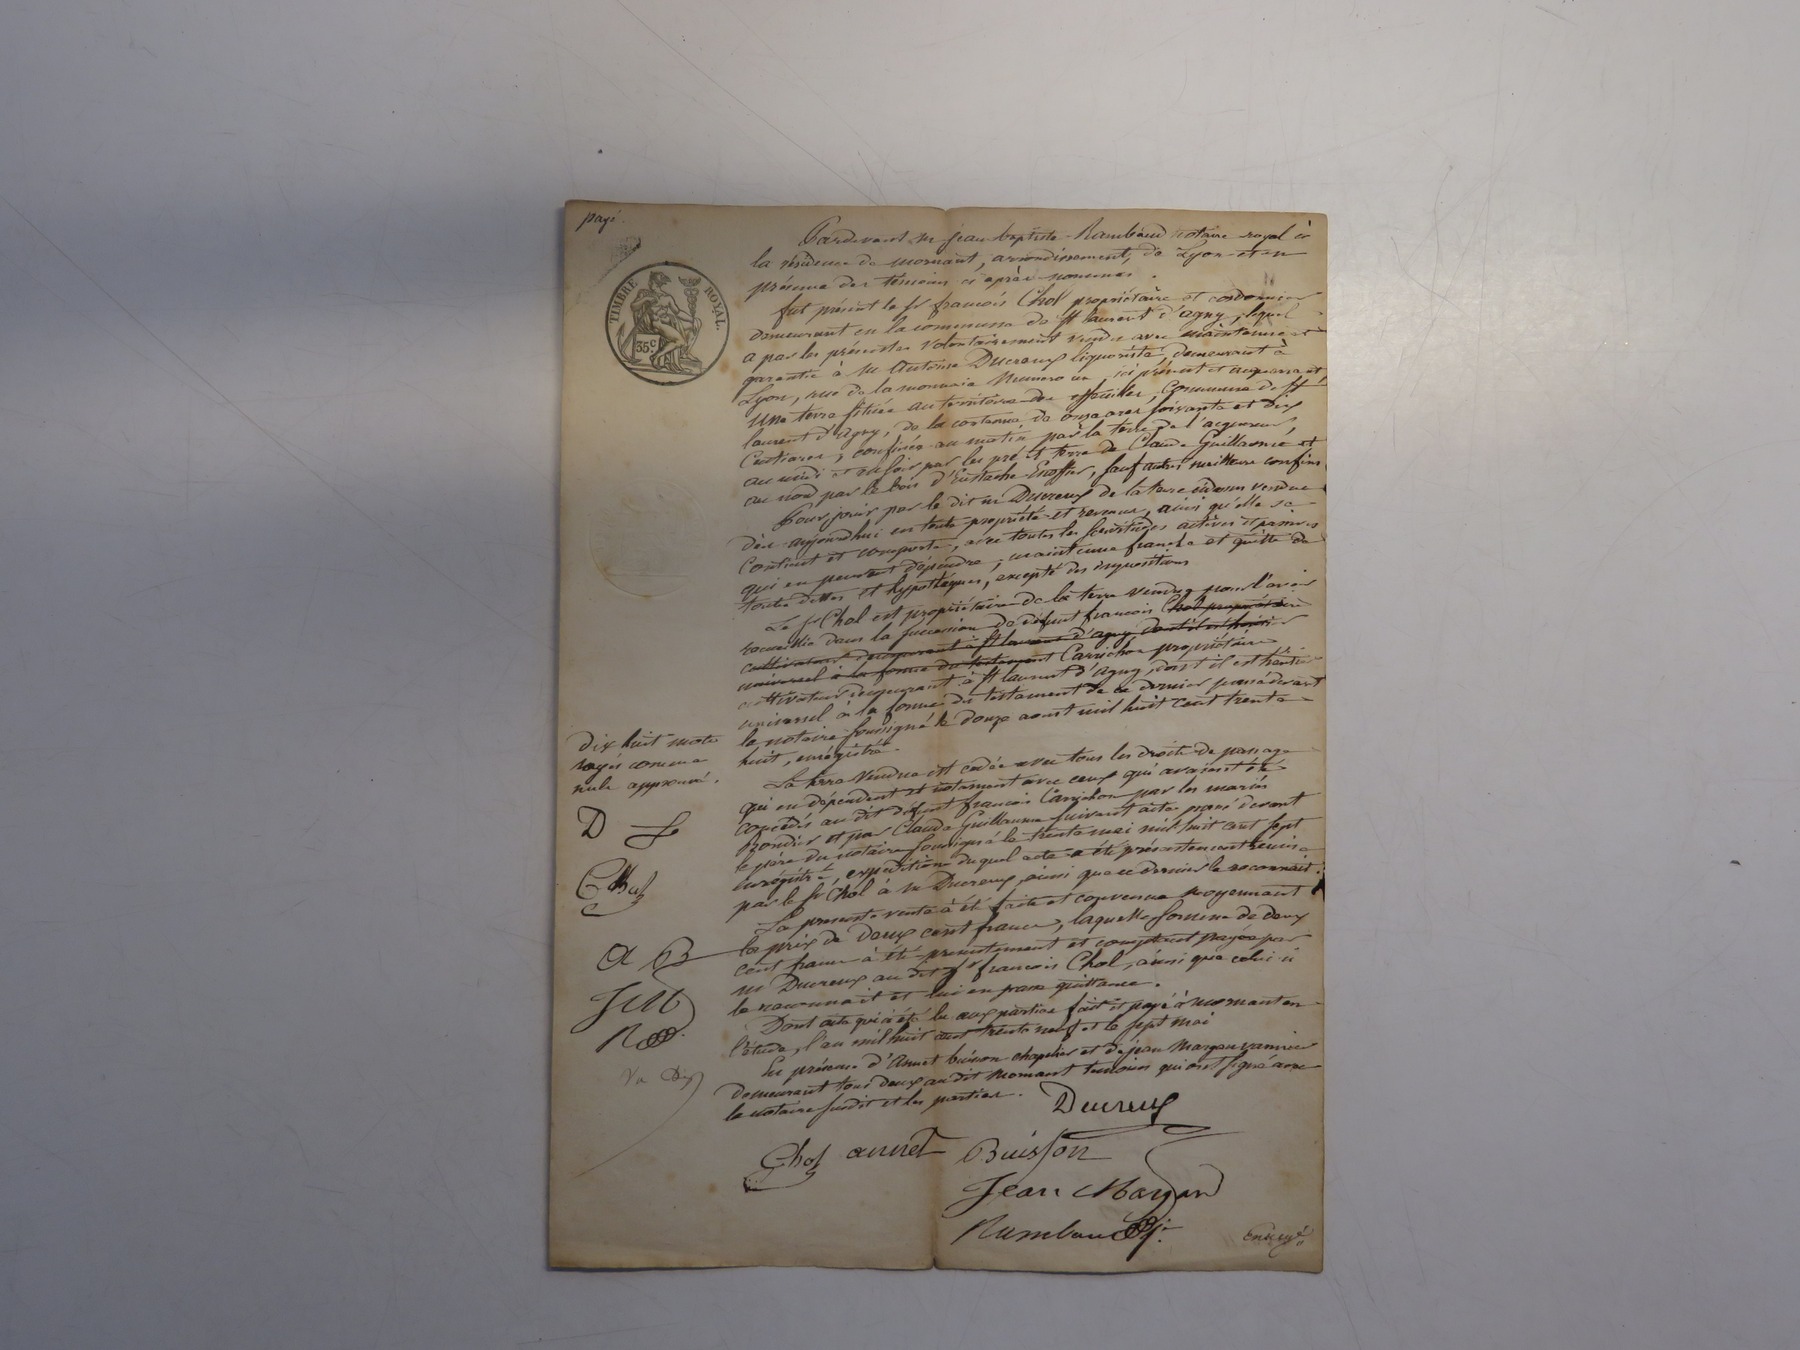 payé
TIMBRE ROYAL.
35 c.
Pardevant m jean baptiste Rambaud notaire royal à
la résidence de mornant, arrondissement de Lyon et en
présence des témoins ci après nommés.
fut présent le sr francois Chol propriétaire et cordonnier
demeurant en la commune de st laurent d'agny, lequel
a par les présentes volontairement vendu avec maintenue et
garantie à m Antoine Ducreux liquoriste, demeurant à
Lyon, rue de la monnaie Numero un ici présent et acquérant
Une terre située au territoire des , Commune de st
laurent d'agny, de la contenue de onze ares soixante et dix
Centiares, confinée au matin par la terre de l'acquereur,
au midi et au soir par les pré et terre de Claude Guillaume et
au nord par le bois d'Eustache , sauf autres meilleurs confins
Pour jouir par le dit m Ducreux de la terre cidessus vendue
dès aujourdhui en toute propriété et revenus, ainsi qu'elle se
Contient et comporte, avec toutes les servitudes actives et passives
qui en peuvent dépendre, maintenue franche et quitte de
toutes dettes et hypotèques, excepté des impositions
Le sr Chol est propriétaire de la terre vendue pour l'avoir
recueillie dans la succession de défunt francois Chol propriétaire
cultivateur demeurant à st laurent d'agny, dont il est héritier
universel à la forme du testament Carrichon propriétaire
cultivateur demeurant à st laurent d'agny, dont il est héritier
universel à la forme du testament de ce dernier passé devant
le notaire soussigné le douze aoust mil huit cent trente
huit, enrégistré.
La terre vendue est cédée avec tous les droits de passage
qui en dépendent et notament avec ceux qui avaient été
concédés au dit défunt francois Carrichon par les mariés
Bondis et par Claude Guillaume suivant acte passé devant
le père du notaire soussigné le trente mai mil huit cent sept
enrégistré, expédition duquel acte a été présentement remise
par le sr Chol à m Ducreux, ainsi que ce dernier le reconnait.
La présente vente à été faite et convenue moyennant
le prix de Deux cent francs, laquelle somme de deux
cent francs à été présentement et comptant payée par
m Ducreux au dit sr francois Chol, ainsi que celui ci
le reconnait et lui en passe quittance.
Dont acte qui a été lu aux parties fait et passé à mornant en
l'étude, l'an mil huit cent trente neuf et le sept mai
En présence d'Annet buisson chapelier et de jean margan vannier
demeurant tous deux au dit mornant témoins qui ont signé avec
le notaire susdit et les parties.
dix huit mots
rayés comme
nuls approuvé.
D
Chol
A B
J M
R
Vu
Ducreux
Chol annet Buisson
Jean Margan
Rambaud